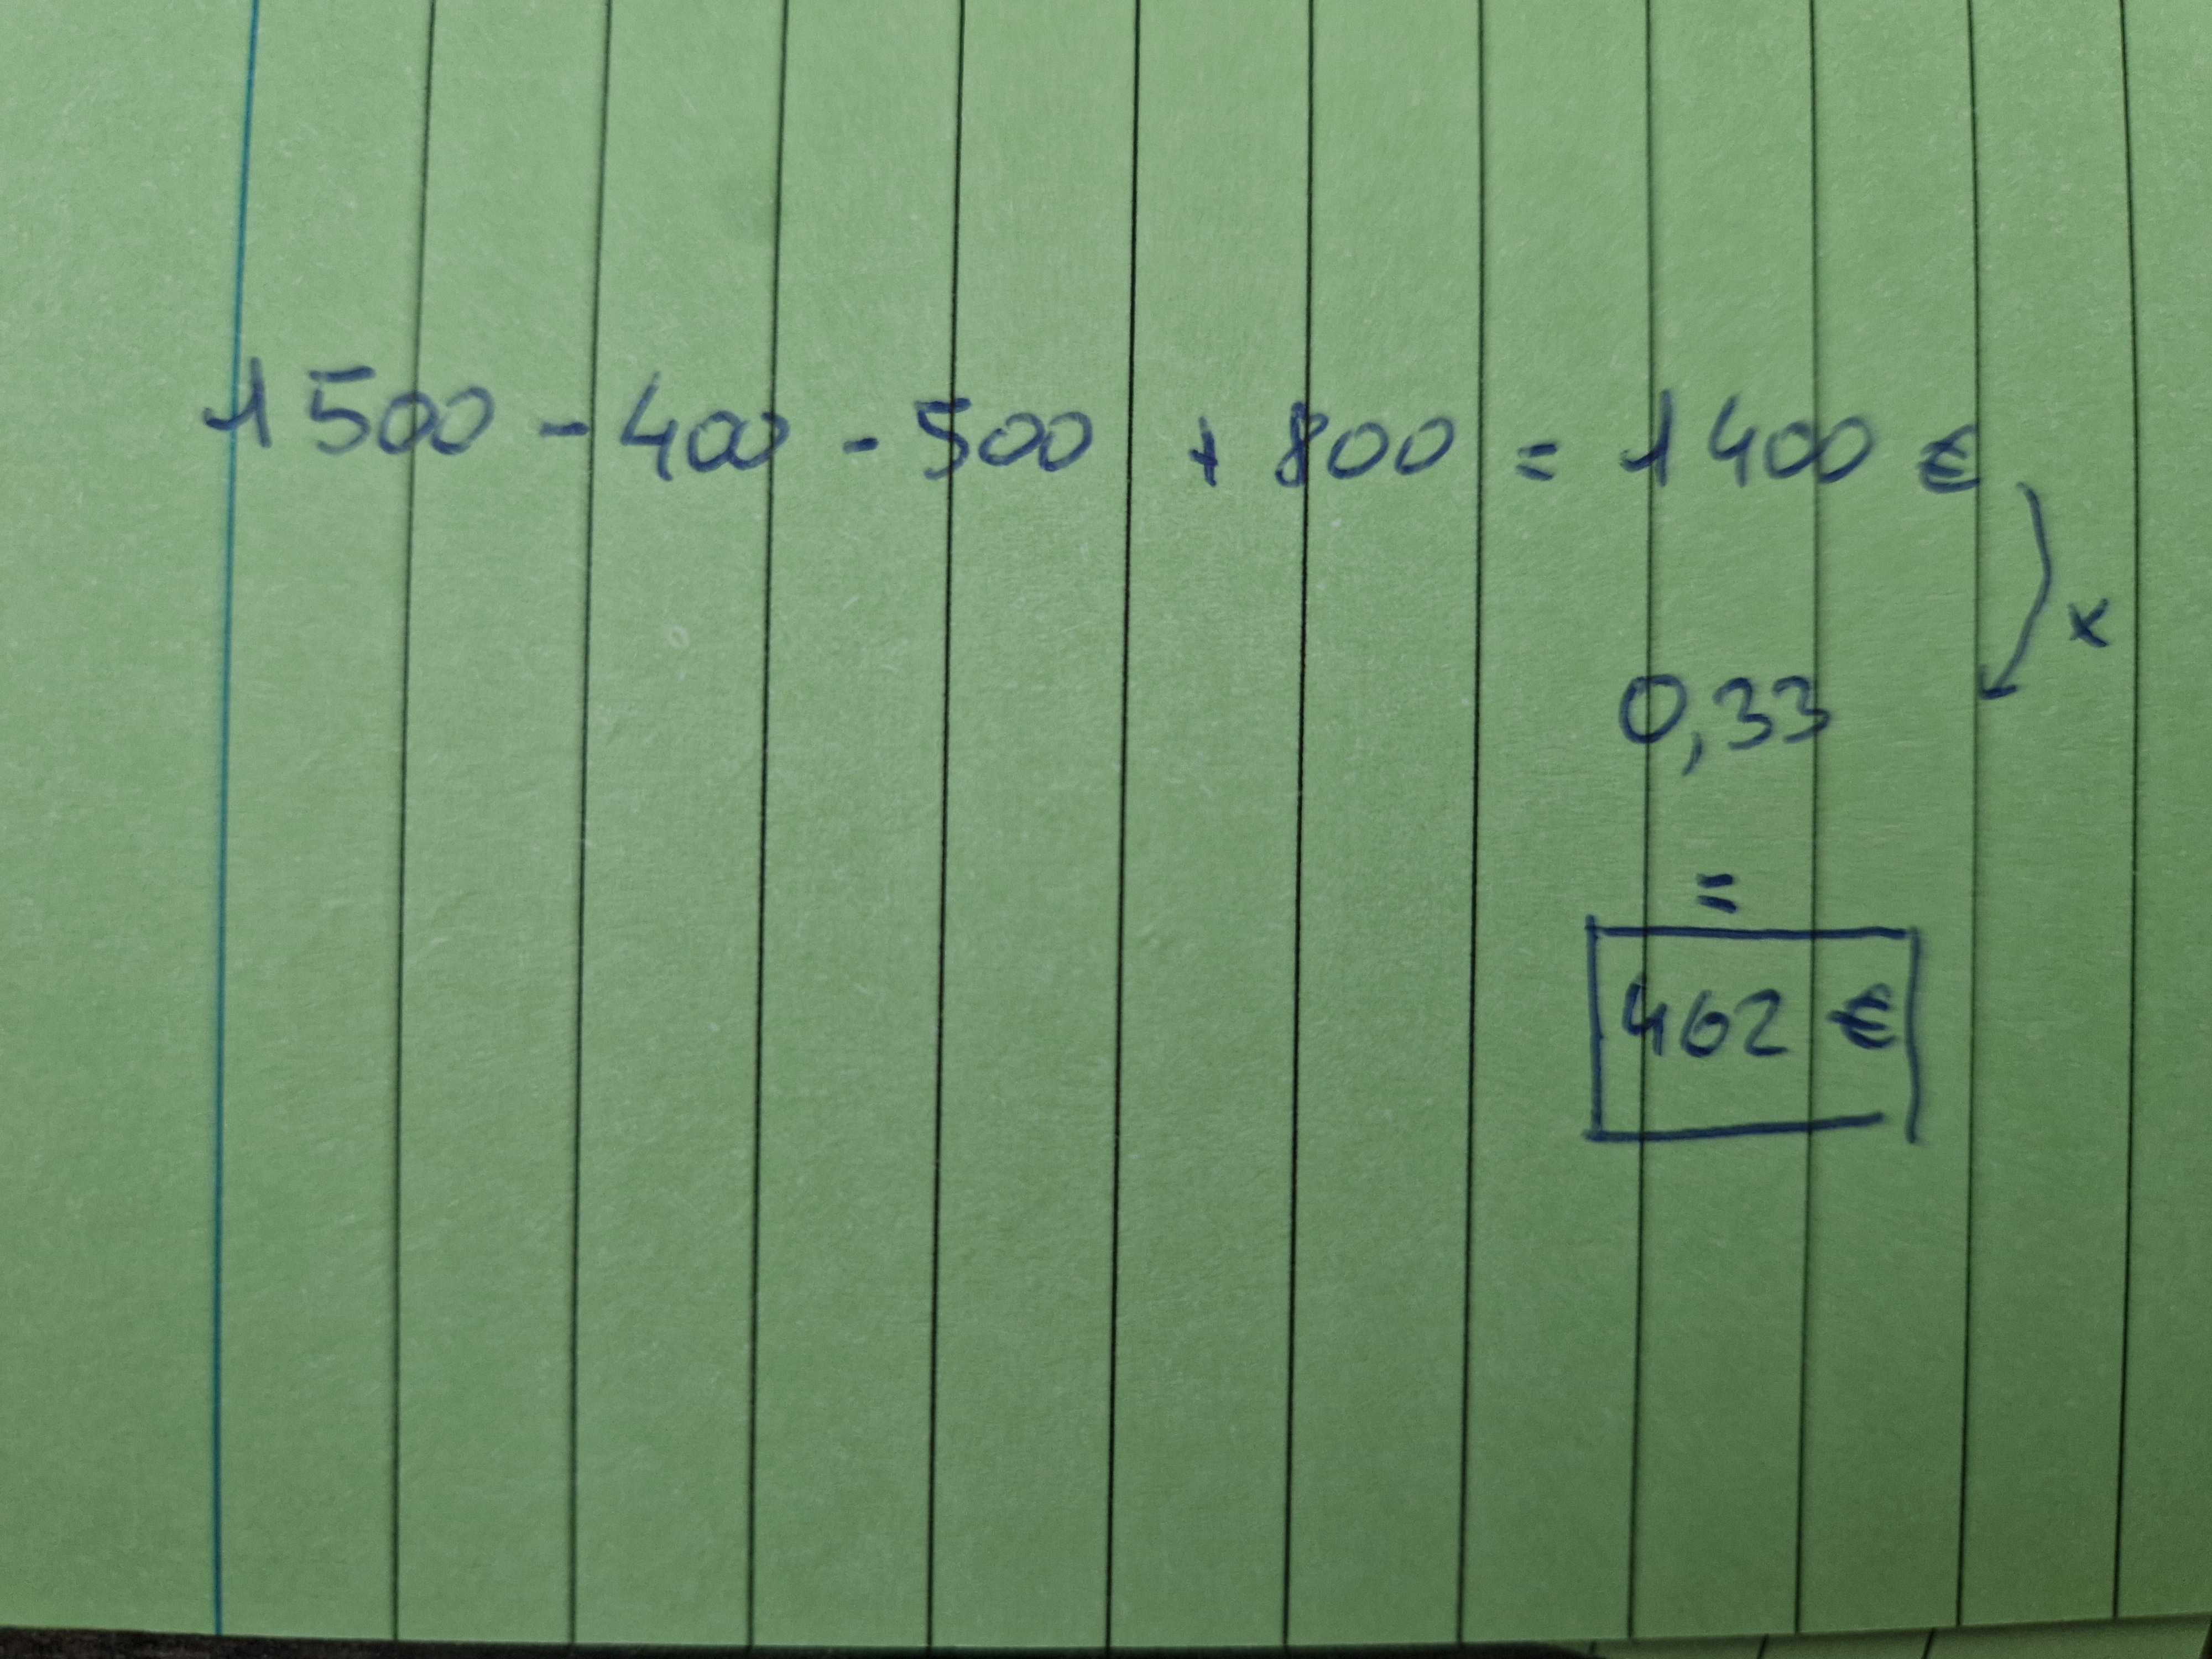 1500 - 400 - 500 + 800 = 1400 €
x
0,33
=
462 €